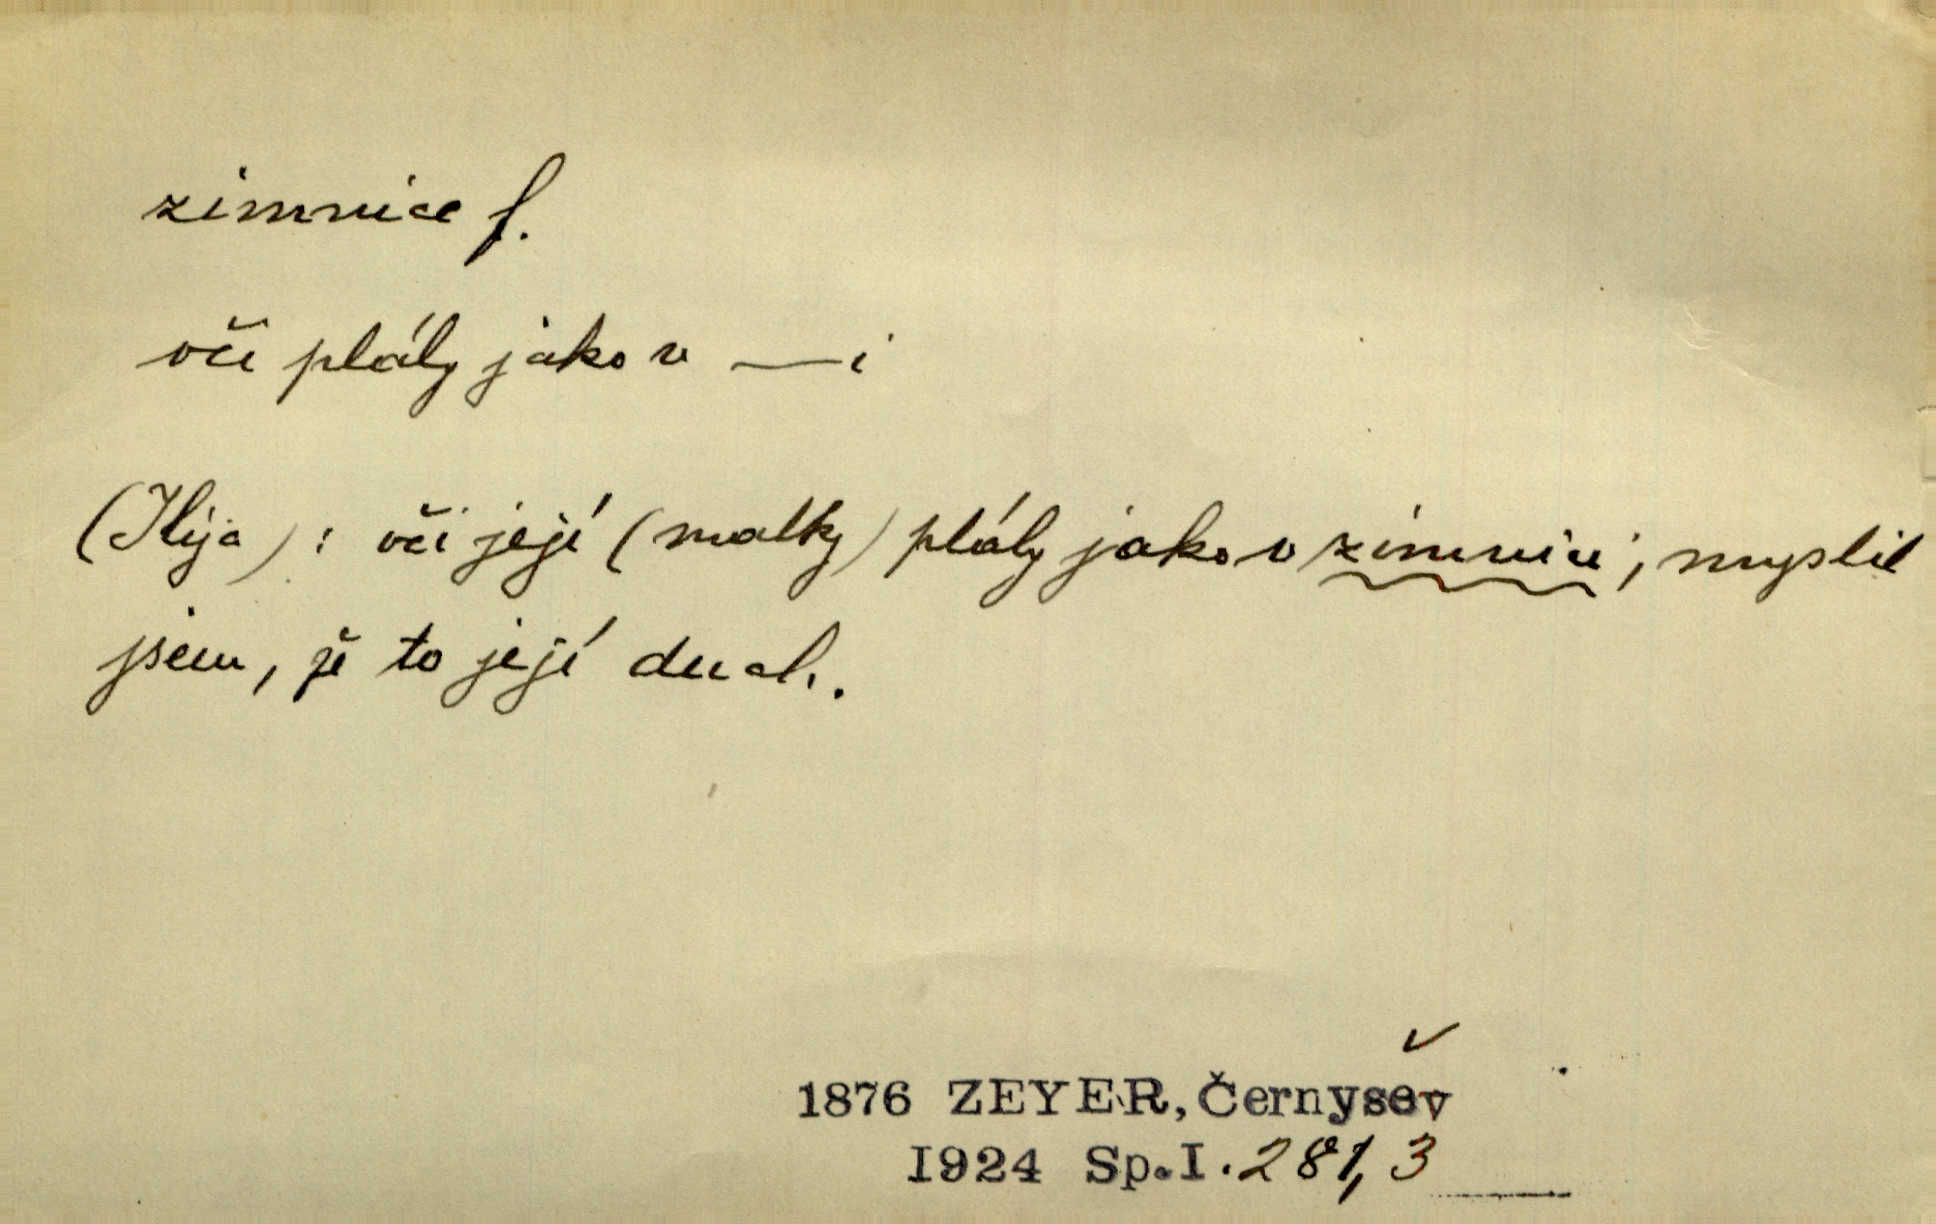 zimnice f.
oči plály jako v —i
(Ilija): oči její (matky) plály jako v zimnici, myslil
jsem, že to její duch.
1876 ZEYER, Černyšev
1924 Sp.I. 281,3